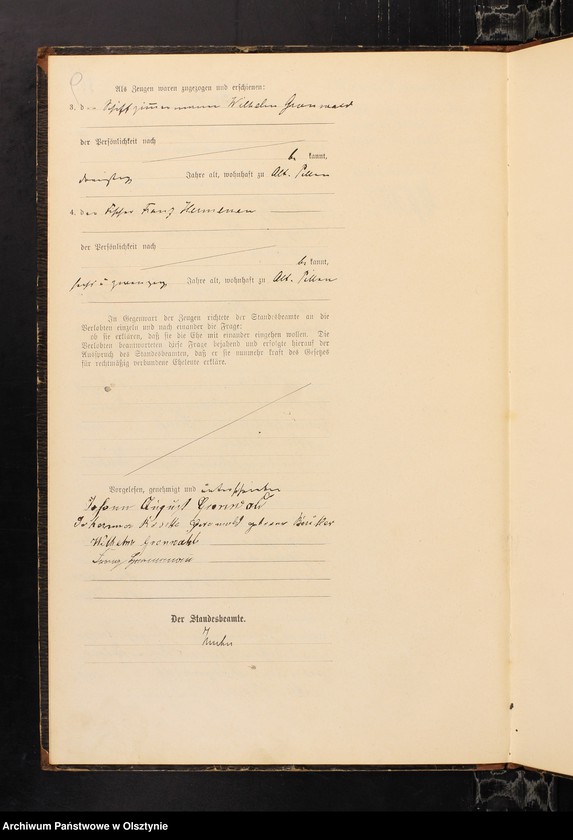 Als Zeugen waren zugezogen und erschienen:
3. der Schiffzimmermann Wilhelm Gronwald
der Persönlichkeit nach
be kannt,
dreißig Jahre alt, wohnhaft zu Alt. Pillau
4. der Fischer Franz
der Persönlichkeit nach
be kannt,
sechs u zwanzig Jahre alt, wohnhaft zu Alt. Pillau
In Gegenwart der Zeugen richtete der Standesbeamte an die
Verlobten einzeln und nach einander die Frage:
ob sie erklären, daß sie die Ehe mit einander eingehen wollen. Die
Verlobten beantworteten diese Frage bejahend und erfolgte hierauf der
Ausspruch des Standesbeamten, daß er sie nunmehr kraft des Gesetzes
für rechtmäßig verbundene Eheleute erkläre.
Vorgelesen, genehmigt und unterschrieben
Johann August Gronwald
Gronwald geborene
Wilhelm Gronwald
Franz
Der Standesbeamte.
Archiwum Państwowe w Olsztynie